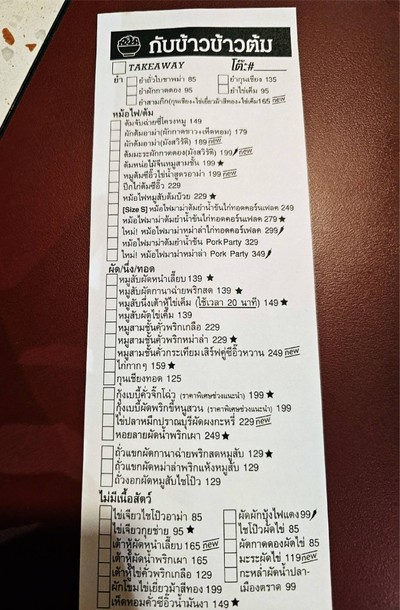 กับข้าวข้าวต้ม
TAKEAWAY โต๊ะ#
ยำ ยำถั่วใบชาพม่า 85 ยำกุนเชียง 135
ยำผักกาดดอง 95 ยำไข่เค็ม 95
ยำสามกีก(กุนเชียง+ไข่เยี่ยวม้าสีทอง+ไข่เค็ม)165 new
หม้อไฟ/ต้ม
ต้มจับฉ่ายซี่โครงหมู 149
ผักต้มอาม่า(ผักกาดขาว+เห็ดหอม) 179
ผักต้มอาม่า(มังสวิรัติ) 189 new
ต้มมะระผักกาดดอง(มังสวิรัติ) 199 new
ต้มหน่อไม้จีนหมูสามชั้น 199 ★
หมูต้มซีอิ๊วไข่น้ำสูตรอาม่า 199 new
ปีกไก่ต้มซีอิ๊ว 229
หม้อไฟหมูสับต้มบ๊วย 229 ★
[Size S] หม้อไฟมาม่าต้มยำน้ำข้นไก่ทอดคอร์นเฟลค 249
หม้อไฟมาม่าต้มยำน้ำข้นไก่ทอดคอร์นเฟลค 279 ★
ใหม่! หม้อไฟมาม่าหม่าล่าไก่ทอดคอร์นเฟลค 299
หม้อไฟมาม่าต้มยำน้ำข้น Pork Party 329
ใหม่! หม้อไฟมาม่าหม่าล่า Pork Party 349
ผัด/นึ่ง/ทอด
หมูสับผัดหนำเลี๊ยบ 139 ★
หมูสับผัดกานาฉ่ายพริกสด 139 ★
หมูสับนึ่งเต้าหู้ไข่เค็ม (ใช้เวลา 20 นาที) 149 ★
หมูสับผัดไข่เค็ม 139
หมูสามชั้นคั่วพริกเกลือ 229
หมูสามชั้นคั่วพริกหม่าล่า 229 ★
หมูสามชั้นคั่วกระเทียมเสิร์ฟคู่ซีอิ๊วหวาน 249 new
ไก่กากๆ 159 ★
กุนเชียงทอด 125
กุ้งเบบี้คั่วจิ๊กโฉ่ว (ราคาพิเศษช่วงแนะนำ) 199 ★
กุ้งเบบี้ผัดพริกขี้หนูสวน (ราคาพิเศษช่วงแนะนำ) 199
ไข่ปลาหมึกปราณบุรีผัดผงกะหรี่ 229 new
หอยลายผัดน้ำพริกเผา 249 ★
ถั่วแขกผัดกานาฉ่ายพริกสดหมูสับ 129 ★
ถั่วแขกผัดหม่าล่าพริกแห้งหมูสับ 129
ถั่วงอกผัดหมูสับไชโป๊ว 129
ไม่มีเนื้อสัตว์
ไข่เจียวไชโป๊วอาม่า 85 ผัดผักบุ้งไฟแดง 99
ไข่เจียวกุยช่าย 95 ★ ไชโป๊วผัดไข่ 85
เต้าหู้ผัดหนำเลี๊ยบ 165 new ผักกาดดองผัดไข่ 85
เต้าหู้ผัดน้ำพริกเผา 165 มะระผัดไข่ 119 new
เต้าหู้ไข่คั่วพริกเกลือ 129 กะหล่ำผัดน้ำปลา-
ผักโขมไข่เยี่ยวม้าสีทอง 199 เมืองตราด 99
เห็ดหอมคั่วซีอิ๊วน้ำมันงา 149 ★